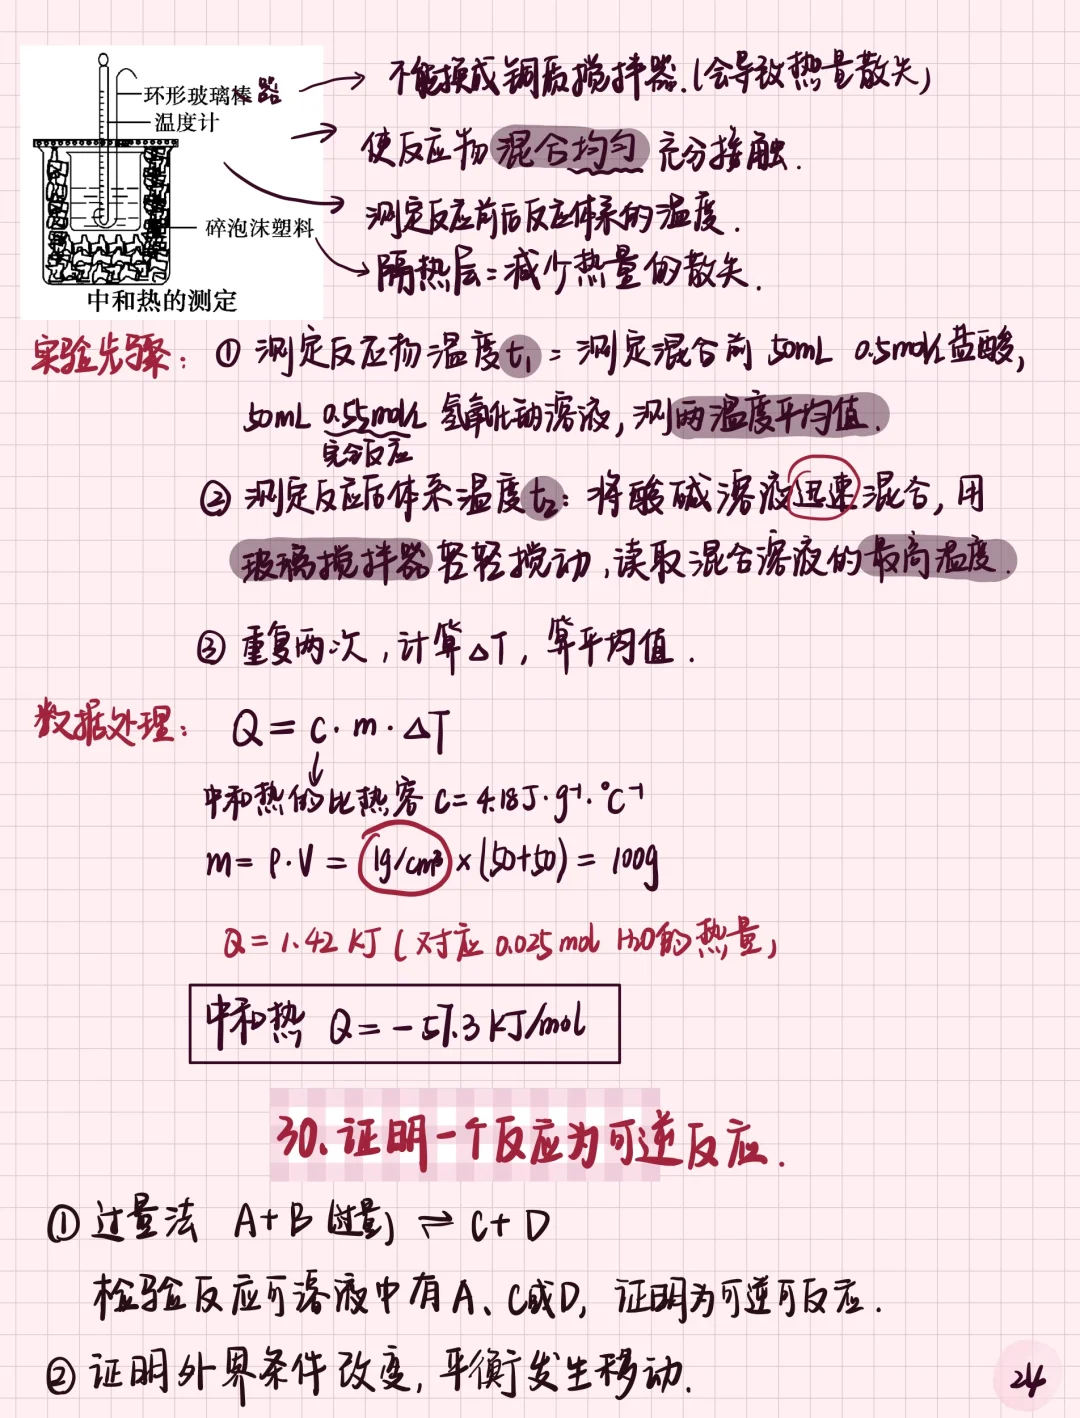 环形玻璃棒器
温度计
碎泡沫塑料
中和热的测定
不能换成铜质搅拌器.(会导致热量散失)
使反应物混合均匀充分接触.
测定反应前后反应体系的温度.
隔热层:减少热量的散失.
实验步骤:① 测定反应物温度t₁:测定混合前 50mL 0.5mol/L盐酸,
50mL 0.55mol/L 氢氧化钠溶液,测两温度平均值.
完全反应
② 测定反应后体系温度t₂:将酸碱溶液迅速混合,用
玻璃搅拌器轻轻搅动,读取混合溶液的最高温度.
③ 重复两次,计算△T,算平均值.
数据处理: Q=c·m·△T
中和热的比热容 C=4.18J·g⁻¹·℃⁻¹
m=ρ·V=1g/cm³×(50+50)=100g
Q=1.42 KJ(对应 0.025mol H₂O的热量)
中和热 Q=-57.3KJ/mol
30.证明一个反应为可逆反应.
① 过量法 A+B(过量)⇌C+D
检验反应可溶液中有A、C或D,证明为可逆可反应.
② 证明外界条件改变,平衡发生移动.
24